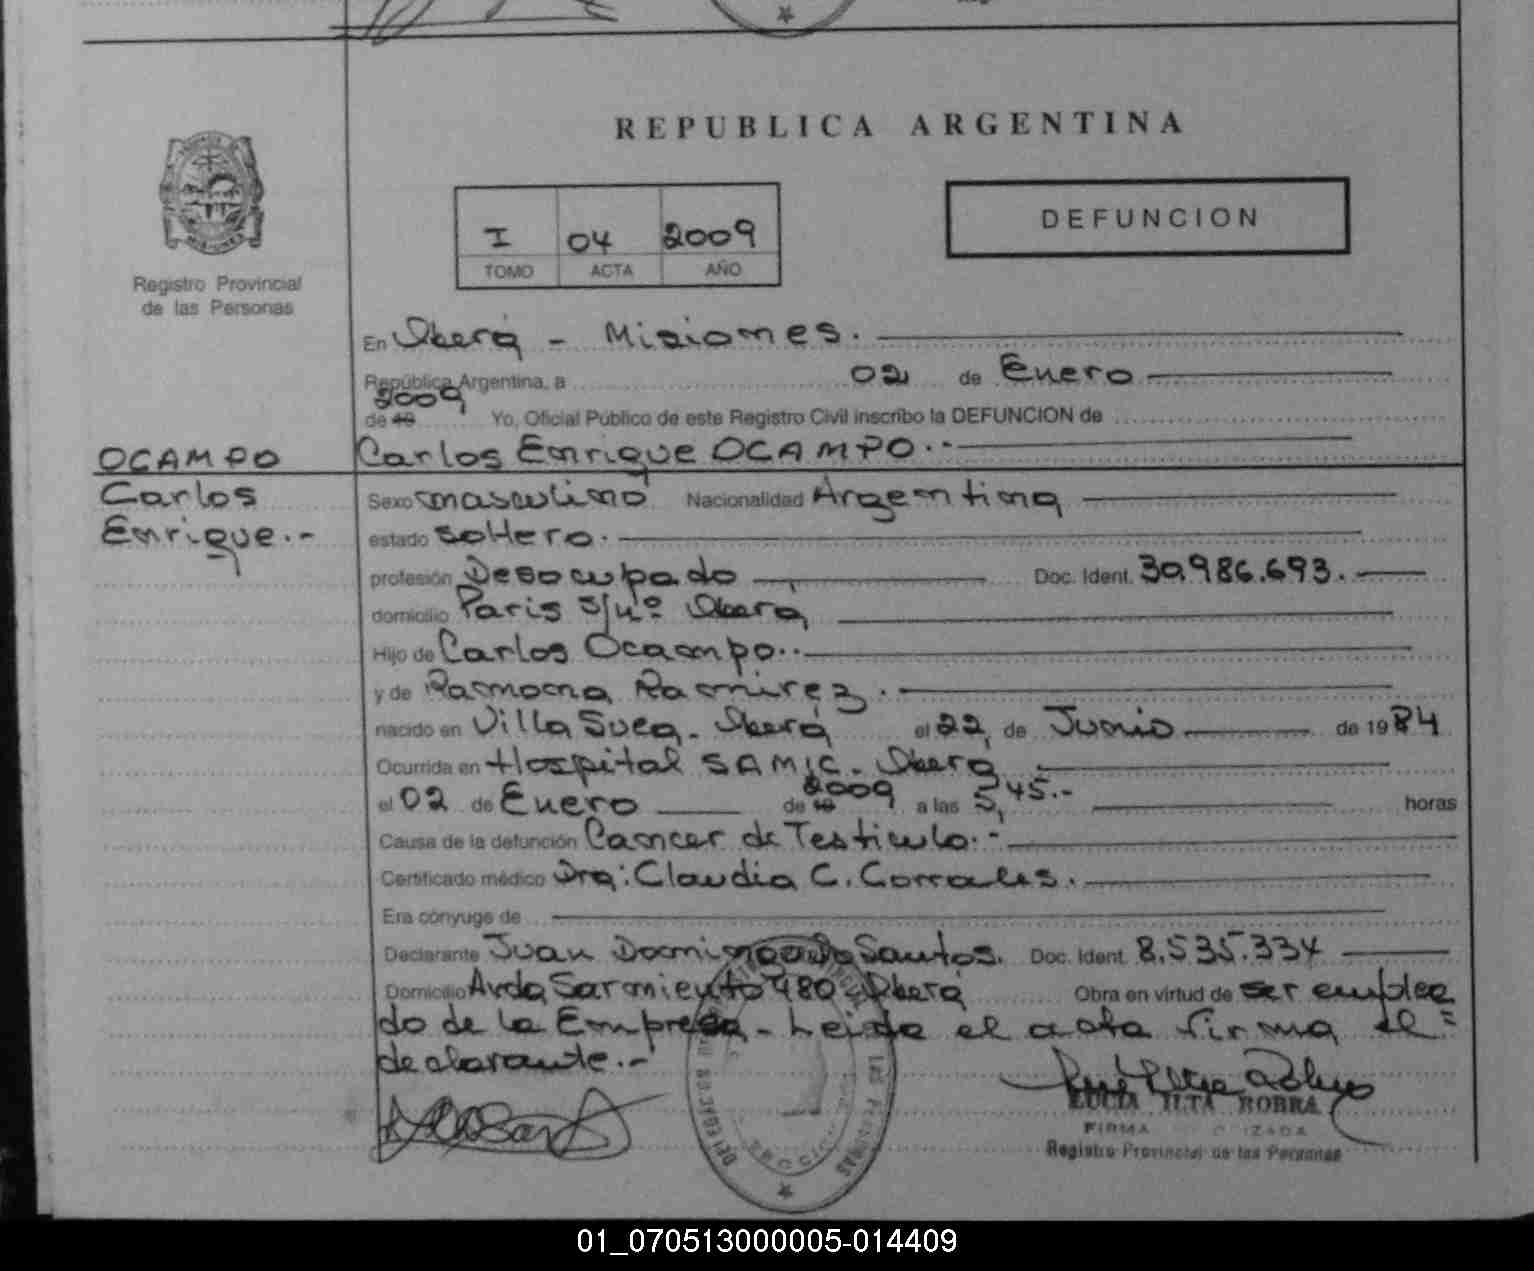 REPUBLICA ARGENTINA
I 04 2009
TOMO ACTA AÑO
DEFUNCION
Registro Provincial
de las Personas
En Oberá - Misiones.
República Argentina, a 02 de Enero
2009
de 19 Yo, Oficial Público de este Registro Civil inscribo la DEFUNCION de
OCAMPO Carlos Enrique OCAMPO.-
Carlos
Enrique.-
Sexo masculino Nacionalidad Argentina
estado soltero.
profesión Desocupado Doc. Ident. 30.986.693.
domicilio Paris s/nº Oberá
Hijo de Carlos Ocampo..
y de Ramona Ramirez.
nacido en Villa Sueca. Oberá el 22, de Junio de 1984
Ocurrida en Hospital SAMIC. Oberá
el 02 de Enero de 19 2009 a las 5,45.- horas
Causa de la defunción Cancer de Testiculo.-
Certificado médico Dra: Claudia C. Corrales.
Era cónyuge de
Declarante Juan Domingo Do Santos. Doc. Ident. 8.535.334
Domicilio Avda Sarmiento 980 Oberá Obra en virtud de ser emplea
do de la Empresa - Leida el acta firma el=
declarante.-
LAS PERSONAS
FIRMA
Registro Provincial de las Personas
01_070513000005-014409